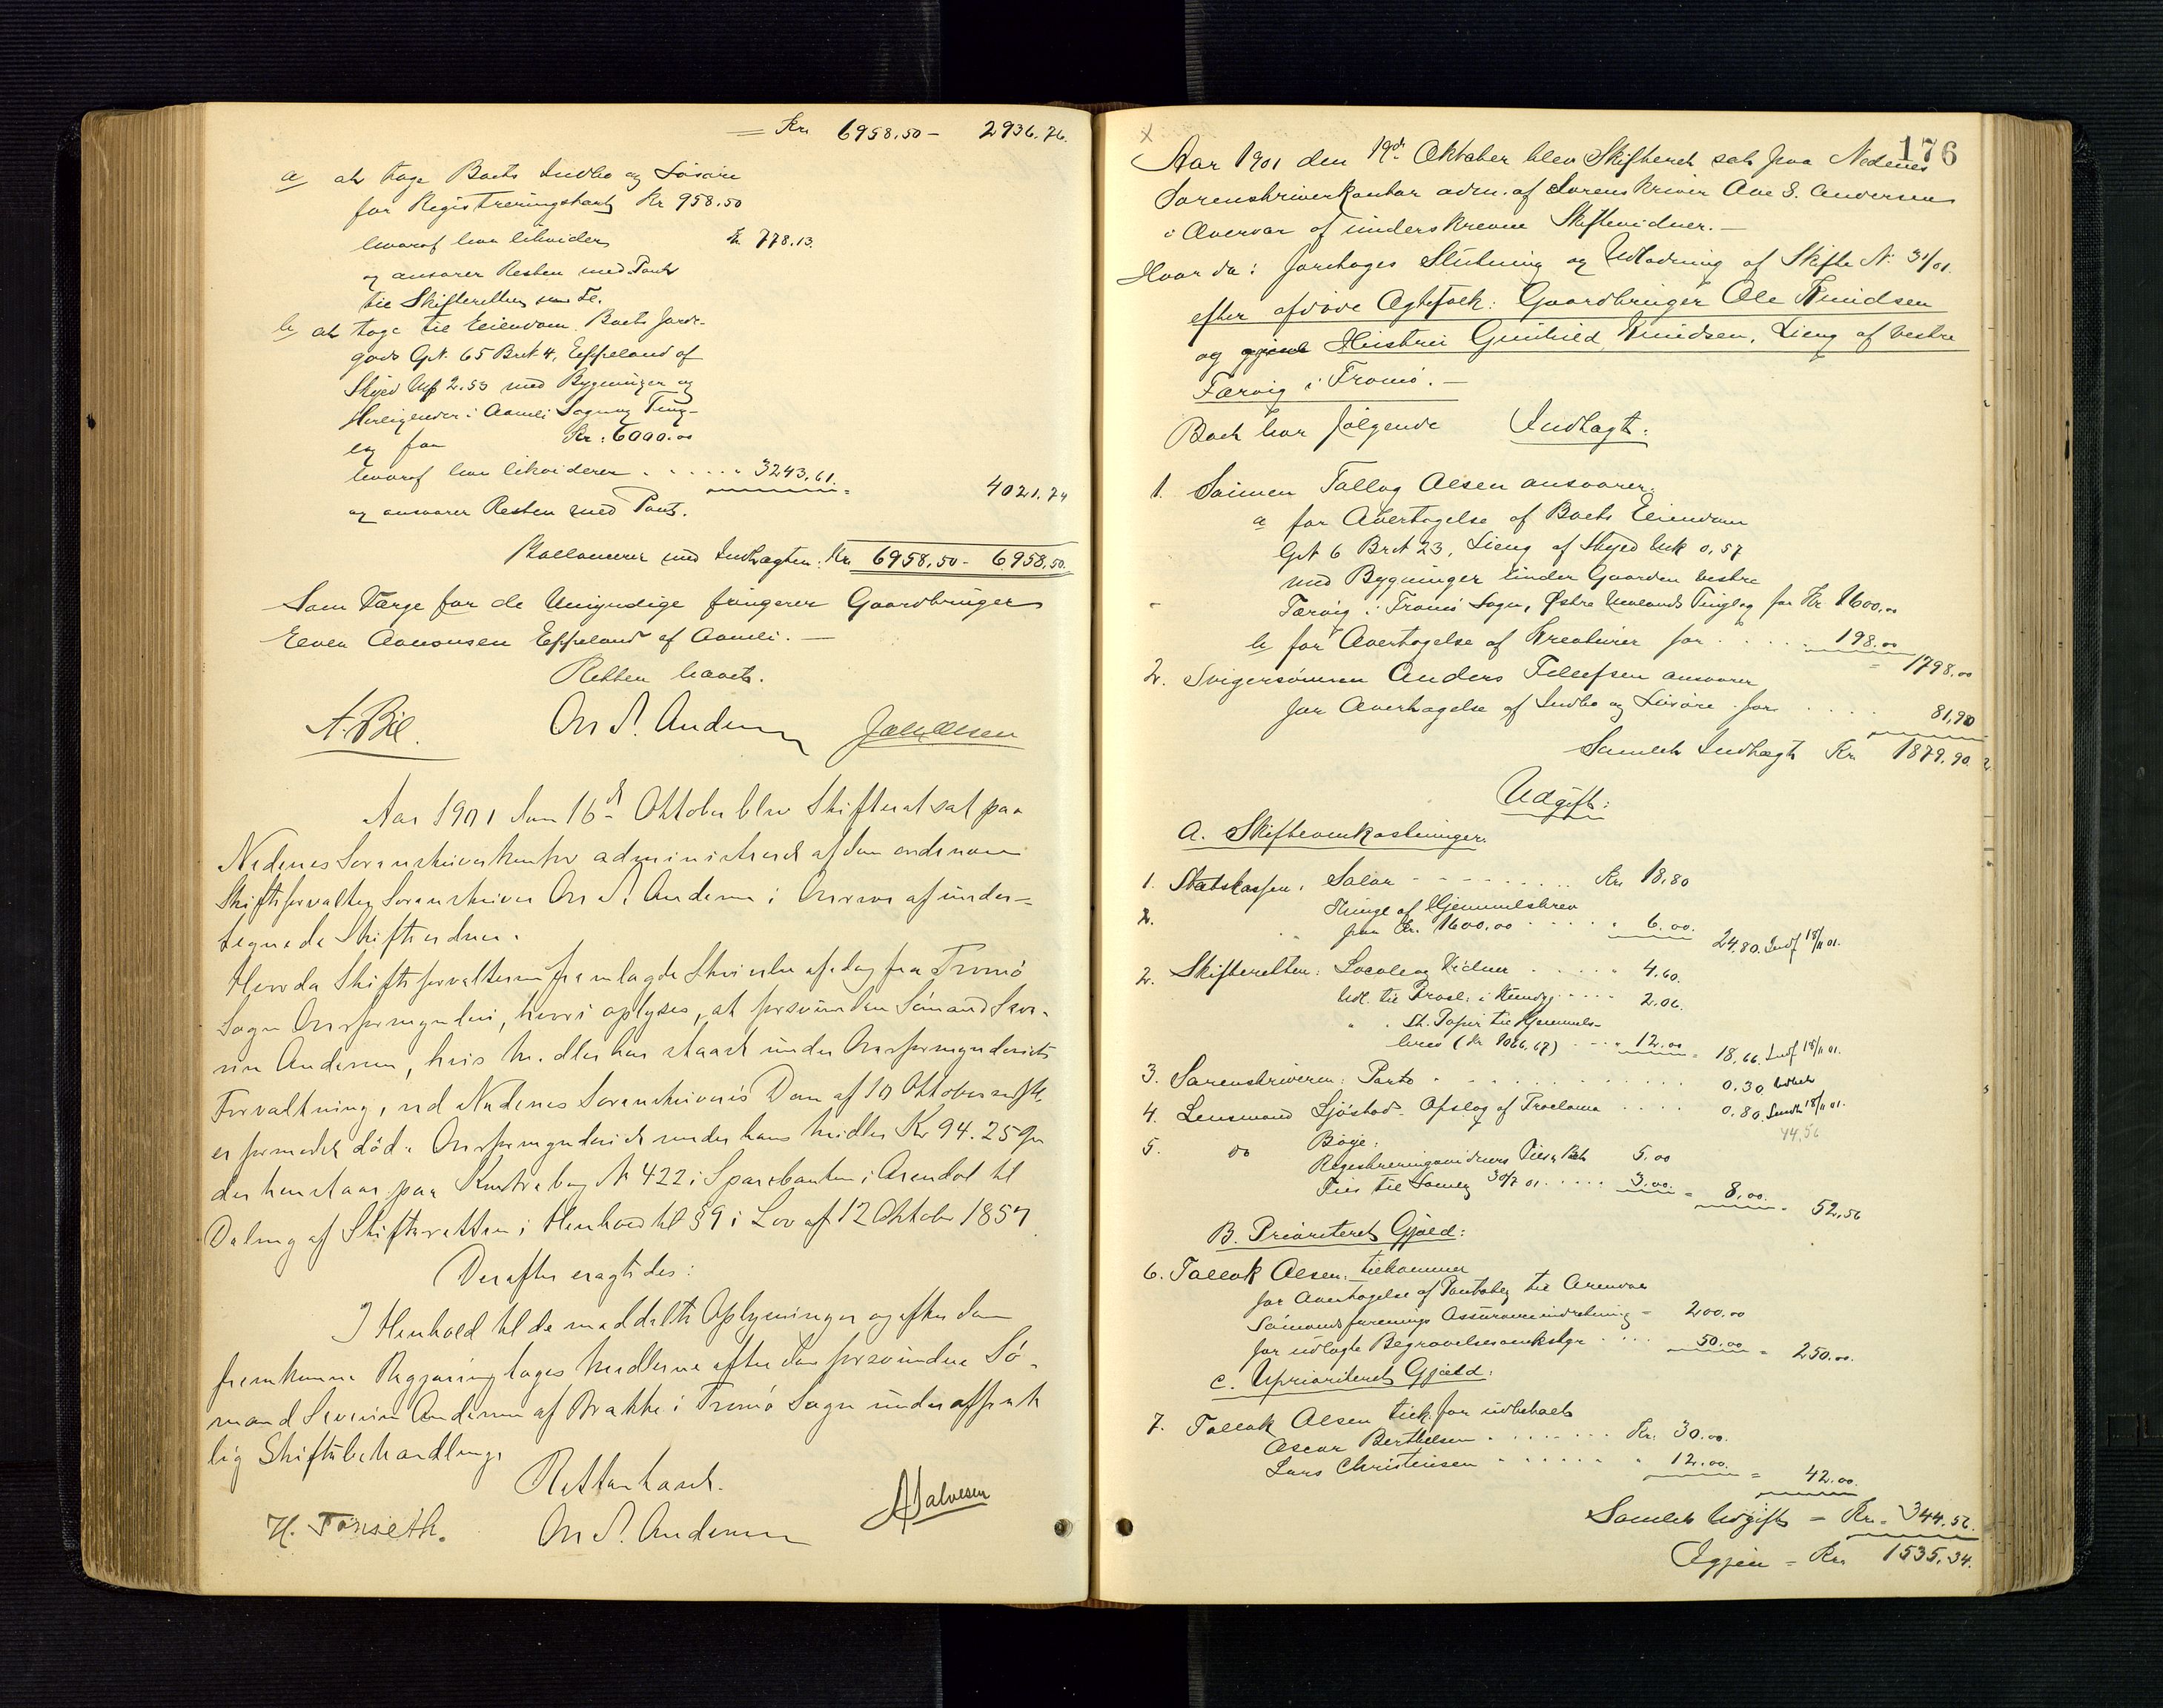 = Kr. 6958.50 – 2936.76.
a at tage Boets Indbo og Løsøre
for Registreringstaxt Kr 958.50
hvoraf han likviderer Kr. 778.13.
og ansvarer Resten med Pant
til Skifteretten
b at tage til Eiendom Boets Jorde-
gods Gr. 65 Br 4, Eppeland af
Skyld Mk 2.53 med Bygninger og
Herligheder i Aamli Sogn og Ting-
lag for Kr: 6000.00
hvoraf han likviderer . . . . . 3243.61. = 4021.74
og ansvarer Resten med Pant.
Ballancerer med Indtægten: Kr. 6958.50 – 6958.50.
Som Værge for de Umyndige fungerer Gaardbruger
Even Aanonsen Eppeland af Aamli. —
Retten hævet.
A. Bie. Ove S. Andersen
Aar 1901 den 16de Oktober blev Skifteret sat paa
Nedenes Sorenskriverkontor administreret af den ordinære
Skifteforvalter Sorenskriver Ove S. Andersen i Overvær af under-
tegnede Skiftevidner.
Hvorda Skifteforvalteren fremlagde Skrivelse af idag fra Tromø
Sogns Overformynderi, hvori oplyses, at forsvunden Sømand Seve-
rin Andersen, hvis Midler har staaet under Overformynderiets
Forvaltning, ved Nedenes Sorenskriveris Dom af 10 Oktober
er formodet død. Overformynderiet sender hans Midler Kr 94.25 Øre
der henstaar paa Kontrabog № 422 i Sparebanken i Arendal til
Deling af Skifteretten i Henhold til § 9 i Lov af 12 Oktober 1857
Derefter eragtedes:
I Henhold til de meddelte Oplysninger og efter den
fremkomne Begjæring tages Midlerne efter den forsvundne Sø-
mand Severin Andersen af Brække i Tromø Sogn under offent-
lig Skiftebehandling.
Retten hævet.
H. Torseth. Ove S. Andersen A Salvesen
176
x
Aar 1901 den 19de Oktober blev Skifteret sat paa Nedenes
Sorenskriverkontor adm. af Sorenskriver Ove S. Andersen
i Overvær af underskrevne Skiftevidner. —
Hvor da: foretoges Slutning og Udlodning af Skifte № 31/01.
efter afdøde Ægtefolk: Gaardbruger Ole Knudsen
og Hustru Gunhild Knudsen, Lieng af vestre
Færvig i Tromø. —
Boet har følgende Indtægt:
1. Sønnen Tallag Olsen ansvarer.
a for Overtagelse af Boets Eiendom
Gr 6 Br 23, Lieng af Skyld Mk 0,57
med Bygninger under Gaarden vestre
Færvig i Tromø Sogn, Østre Molands Tinglag for Kr 1600.00
b for Overtagelse af Kreaturer for . . . . . 198.00 = 1798.00
2. Svigersønnen Anders Tellefsen ansvarer
for Overtagelse af Indbo og Løsøre for . . . . 81,90
Samlet Indtægt Kr. 1879.90
Udgift:
A. Skifteomkostninger.
1. Statskassen, Salær . . . . . . . . Kr. 18,80
2. Thingl. af Hjemmelsbrev
paa Kr. 1600.00 . . . . . 6.00. 24.80. Indf 18/11 01.
2. Skifteretten: Locale og Vidner . . . . . 4.60.
Udl. til Procl. i Kundg. . . . . 2.06.
" " St. Papir til Hjemmels-
brev (Kr 1066,67) . . . . 12.00 = 18,66. Indf 18/11 01.
3. Sorenskriveren: Porto . . . . . . . . . 0.30
4. Lensmand Sjøstad. Opslag af Proclama . . . . 0.80. 18/11 01.
44,56
5. do Bøye:
Registreringsvidners 5.00
30/7 01. . . . . 3.00. = 8,00. = 52,56
B. Prioriteret Gjæld:
6. Tallak Olsen, tilkommer
for Overtagelse af Pantobl. til Arendals
Sømandsforenings Assuranceindretning = 200.00
for udlagte Begravelsesomkstgr . . . . 50.00 = 250.00.
C. Uprioriteret Gjæld:
7. Tallak Olsen tilk. for udbetalt
Oscar Berthelsen . . . . . . . Kr. 30.00.
Lars Christensen . . . . . . " 12.00. = 42.00.
Samlet Udgift = Kr. 344.56.
Igjen = Kr. 1535.34.